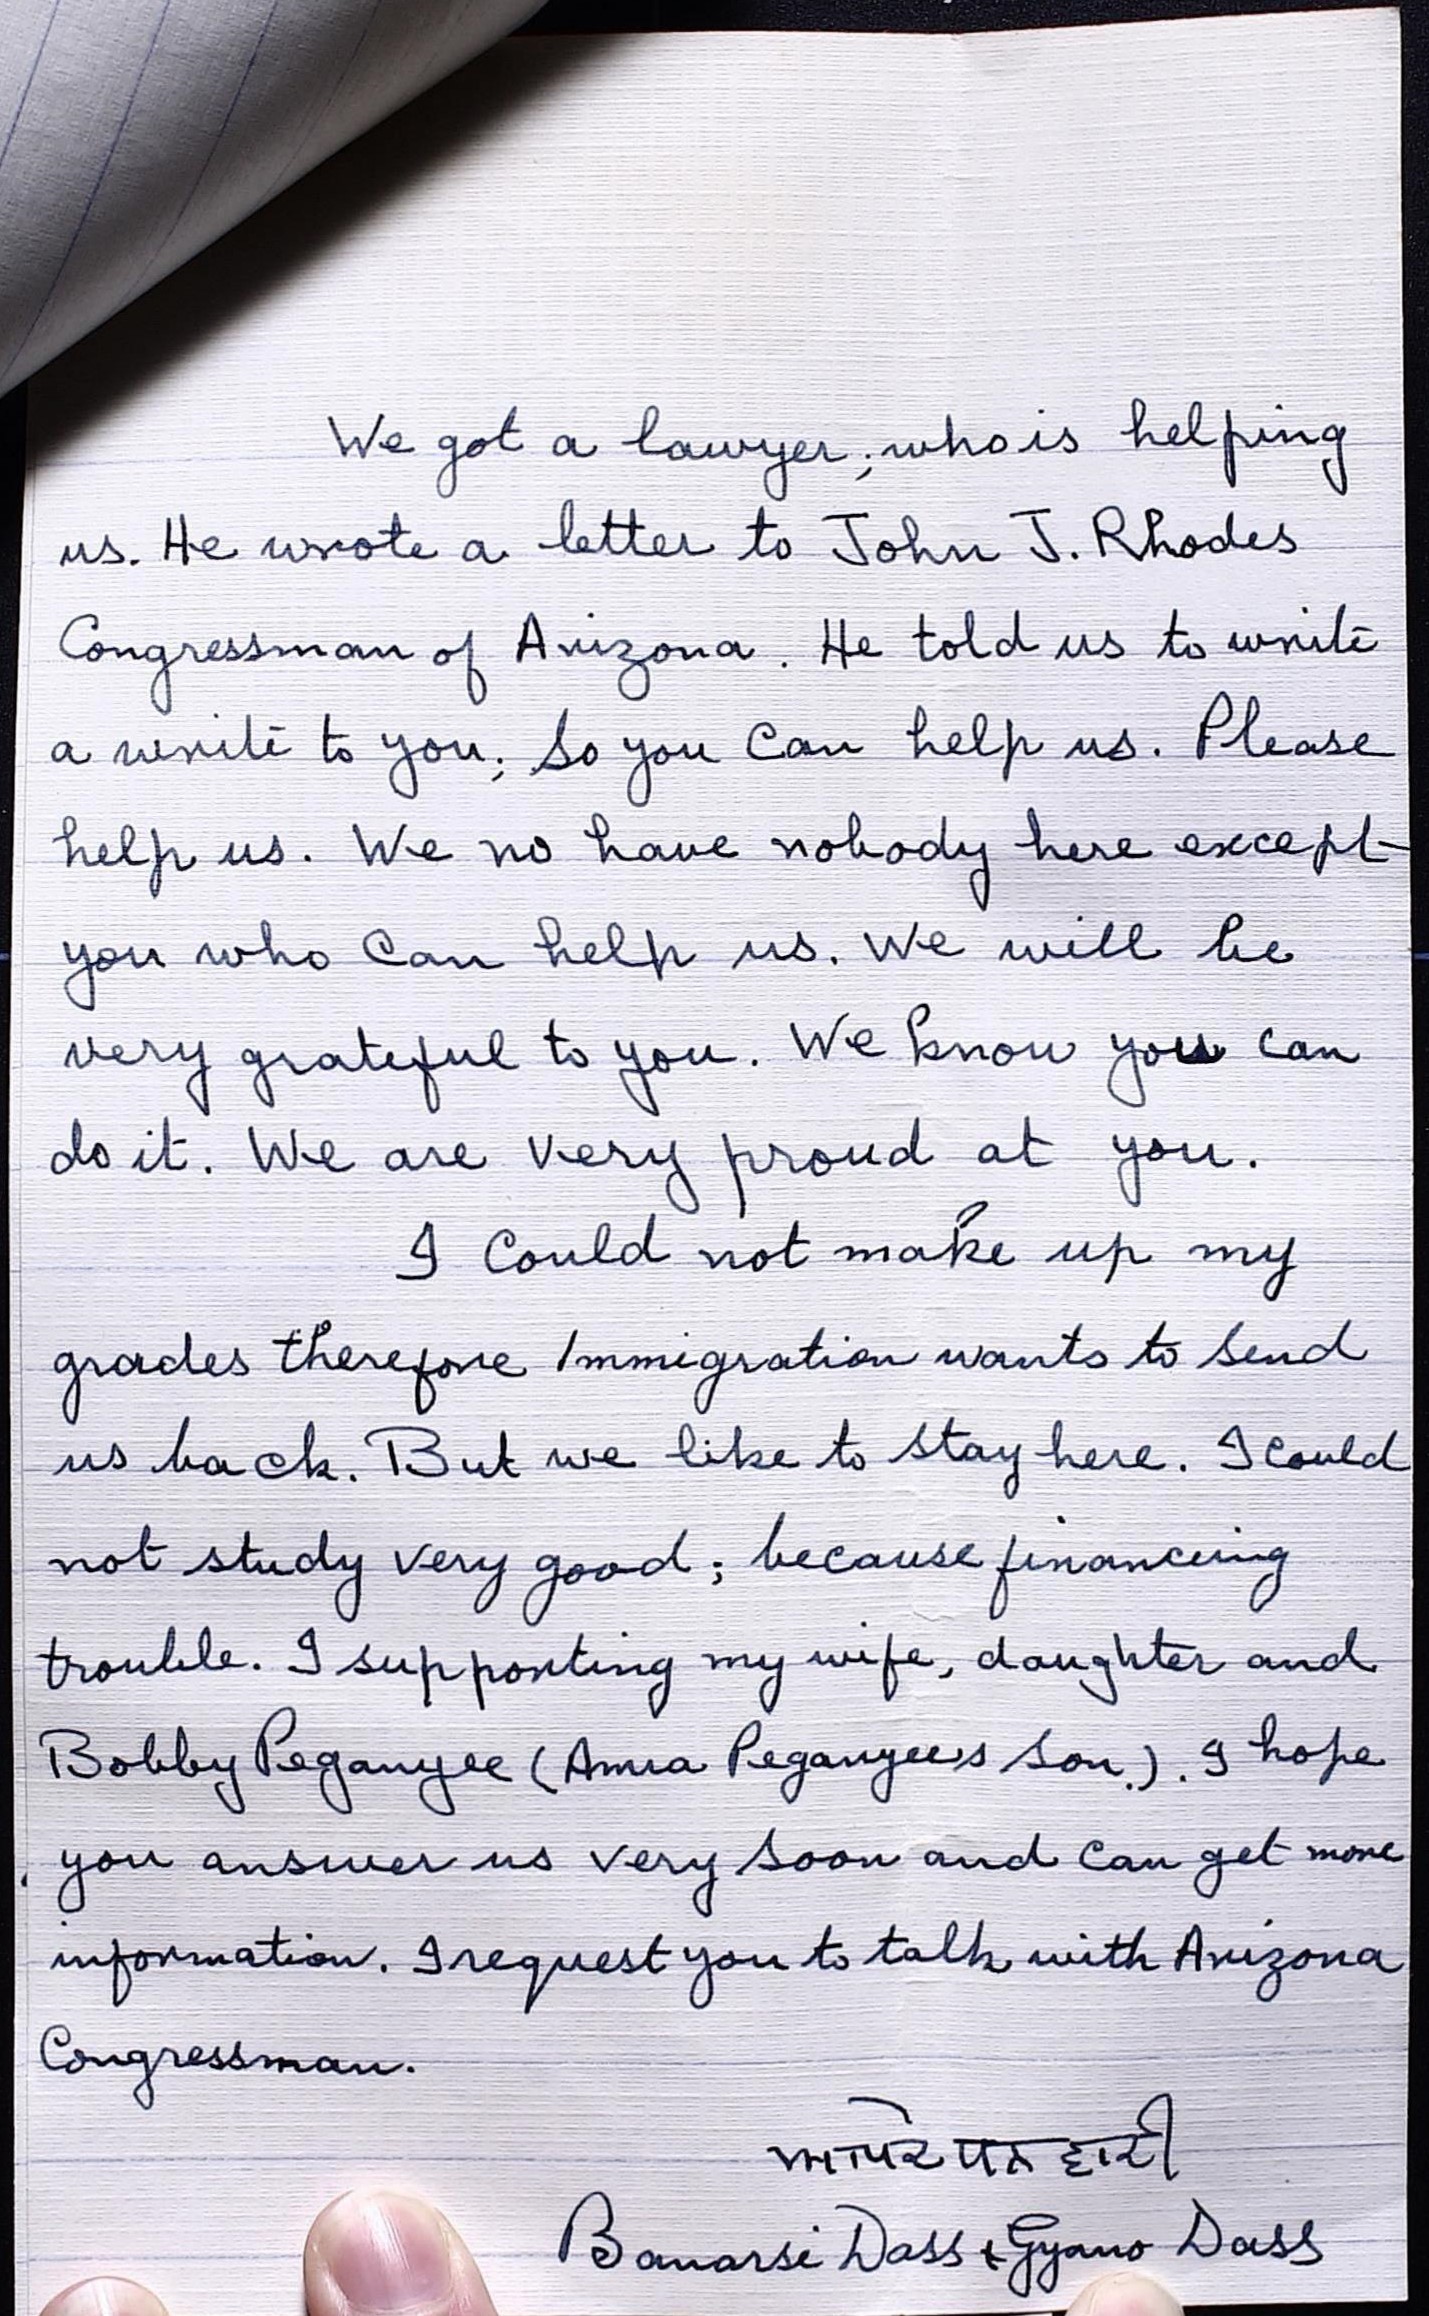 We got a lawyer; who is helping
us. He wrote a letter to John J. Rhodes
Congressman of Arizona. He told us to write
a write to you; So you can help us. Please
help us. We no have nobody here except
you who can help us. We will be
very grateful to you. We know you can
do it. We are very proud at you.
I could not make up my
grades therefore Immigration wants to send
us back. But we like to stay here. I could
not study very good; because financing
trouble. I supporting my wife, daughter and
Bobby Peganyee (Anna Peganyee's son.). I hope
you answer us very soon and can get more
information. I request you to talk with Arizona
Congressman.
Banarsi Dass & Gyano Dass